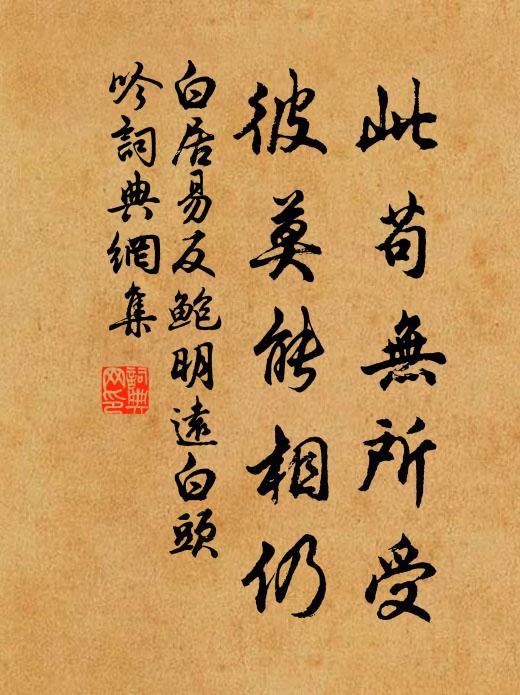 此苟無所受
彼莫能相仍
白居易反鮑明遠白頭
吟詞典網集
詞典
网印